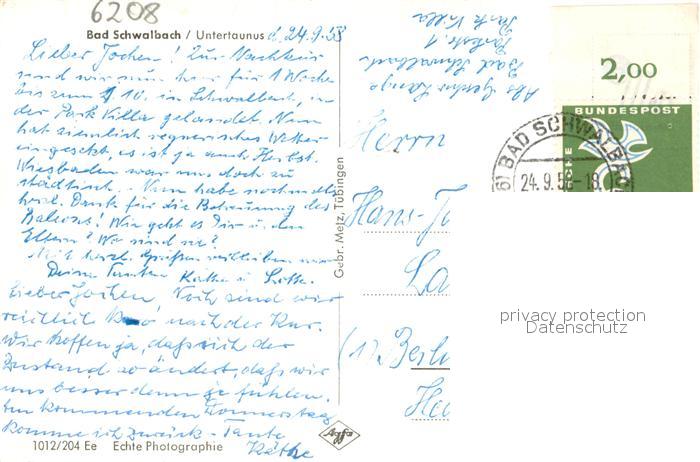 6208
Bad Schwalbach / Untertaunus d. 24.9.58
Lieber Jochen! Zur Nachkur
sind wir nun hier für 1 Woche
bis zum 1. 10. in Schwalbach, in
der Park Villa gelandet. Nun
hat ziemlich regnerisches Wetter
eingesetzt, es ist ja auch Herbst.
Wiesbaden war uns doch zu
städtisch. - Nun habe nochmals
herzl. Dank für die Betreuung des
Balkons! Wie geht es Dir u. den
Eltern? Wo sind sie?
Mit herzl. Grüßen verbleiben wir
Deine Tanten Käthe u. Lotte.
Lieber Jochen, Noch sind wir
reichlich k.o. nach der Kur.
Wir hoffen ja, daß sich der
Zustand so ändert, daß wir
uns besser denn je fühlen.
Am kommenden Donnerstag
komme ich zurück - Tante
Käthe
1012/204 Ee Echte Photographie
Gebr. Metz, Tübingen
Agfa
Abs.
Bad Schwalbach
Parkstr. 1
Park Villa
Herrn
Hans-J
La
(1) Berli
He
2,00
BUNDESPOST
BAD SCHWALBAC
24.9.58-18
privacy protection
Datenschutz